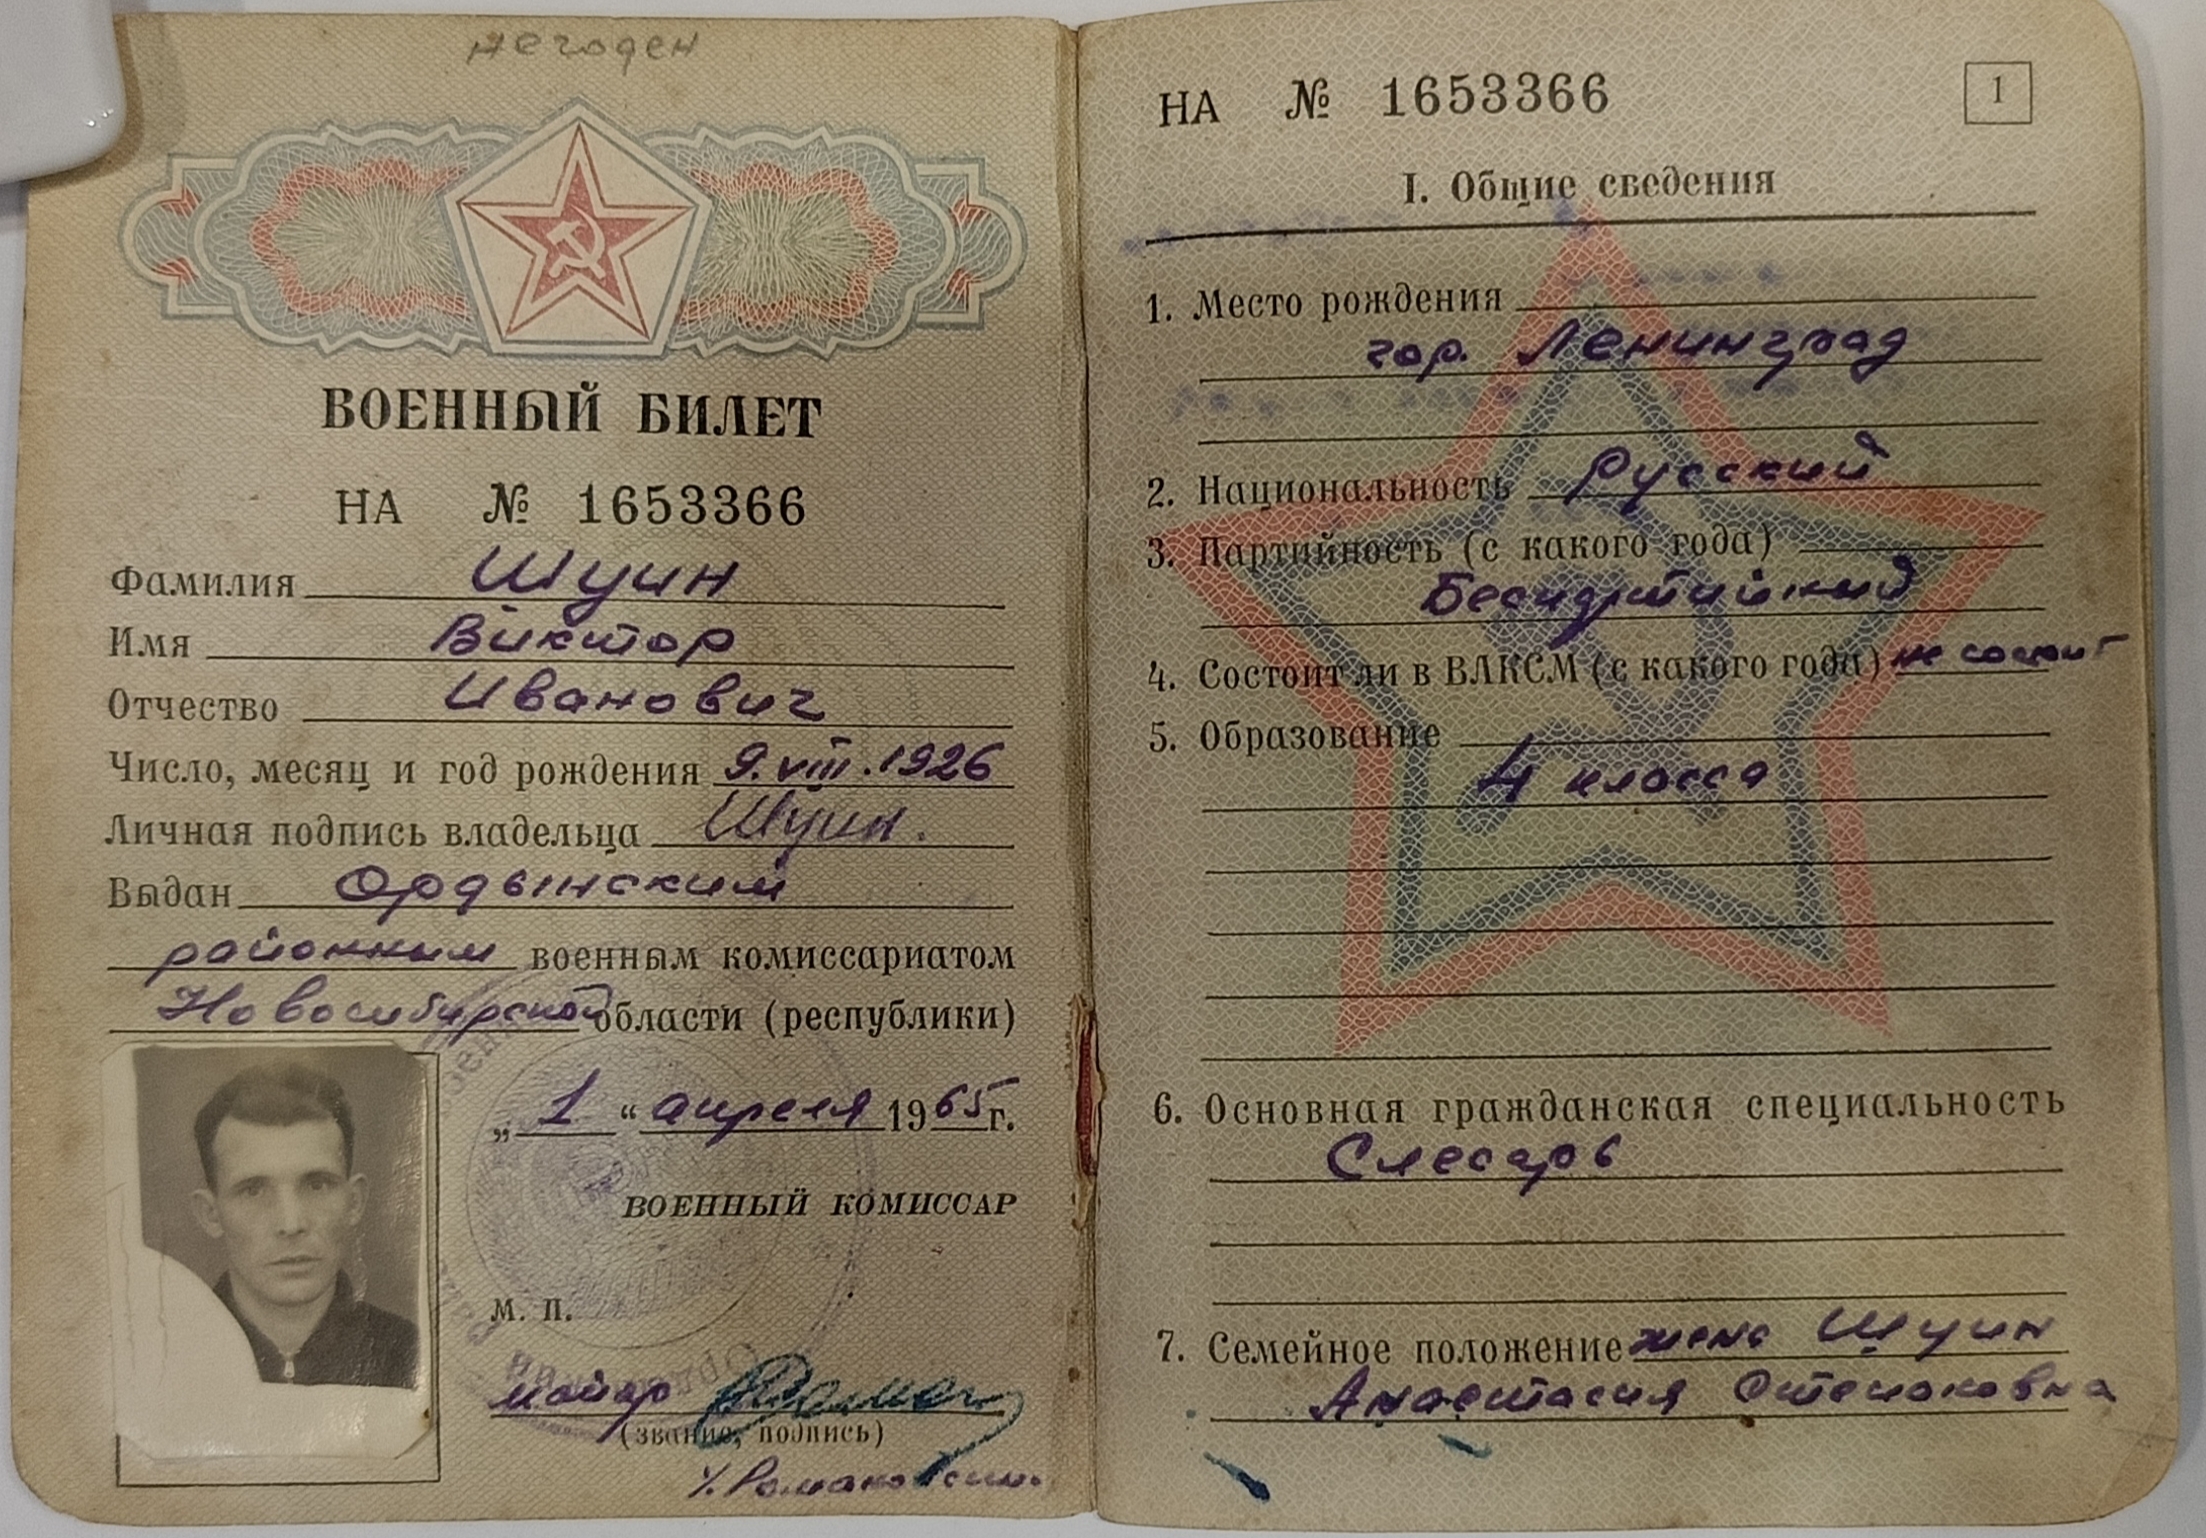 негоден
ВОЕННЫЙ БИЛЕТ
НА № 1653366
Фамилия Шуин
Имя Виктор
Отчество Иванович
Число, месяц и год рождения 9.VIII.1926
Личная подпись владельца Шуин.
Выдан Ордынским
районным военным комиссариатом
Новосибирской области (республики)
„1“ апреля 1965 г.
ВОЕННЫЙ КОМИССАР
М. П.
майор
(звание, подпись)
НА № 1653366
1
I. Общие сведения
1. Место рождения
гор. Ленинград
2. Национальность Русский
3. Партийность (с какого года)
Беспартийный
4. Состоит ли в ВЛКСМ (с какого года) не состоит
5. Образование
4 класса
6. Основная гражданская специальность
Слесарь
7. Семейное положение жена Шуин
Анастасия